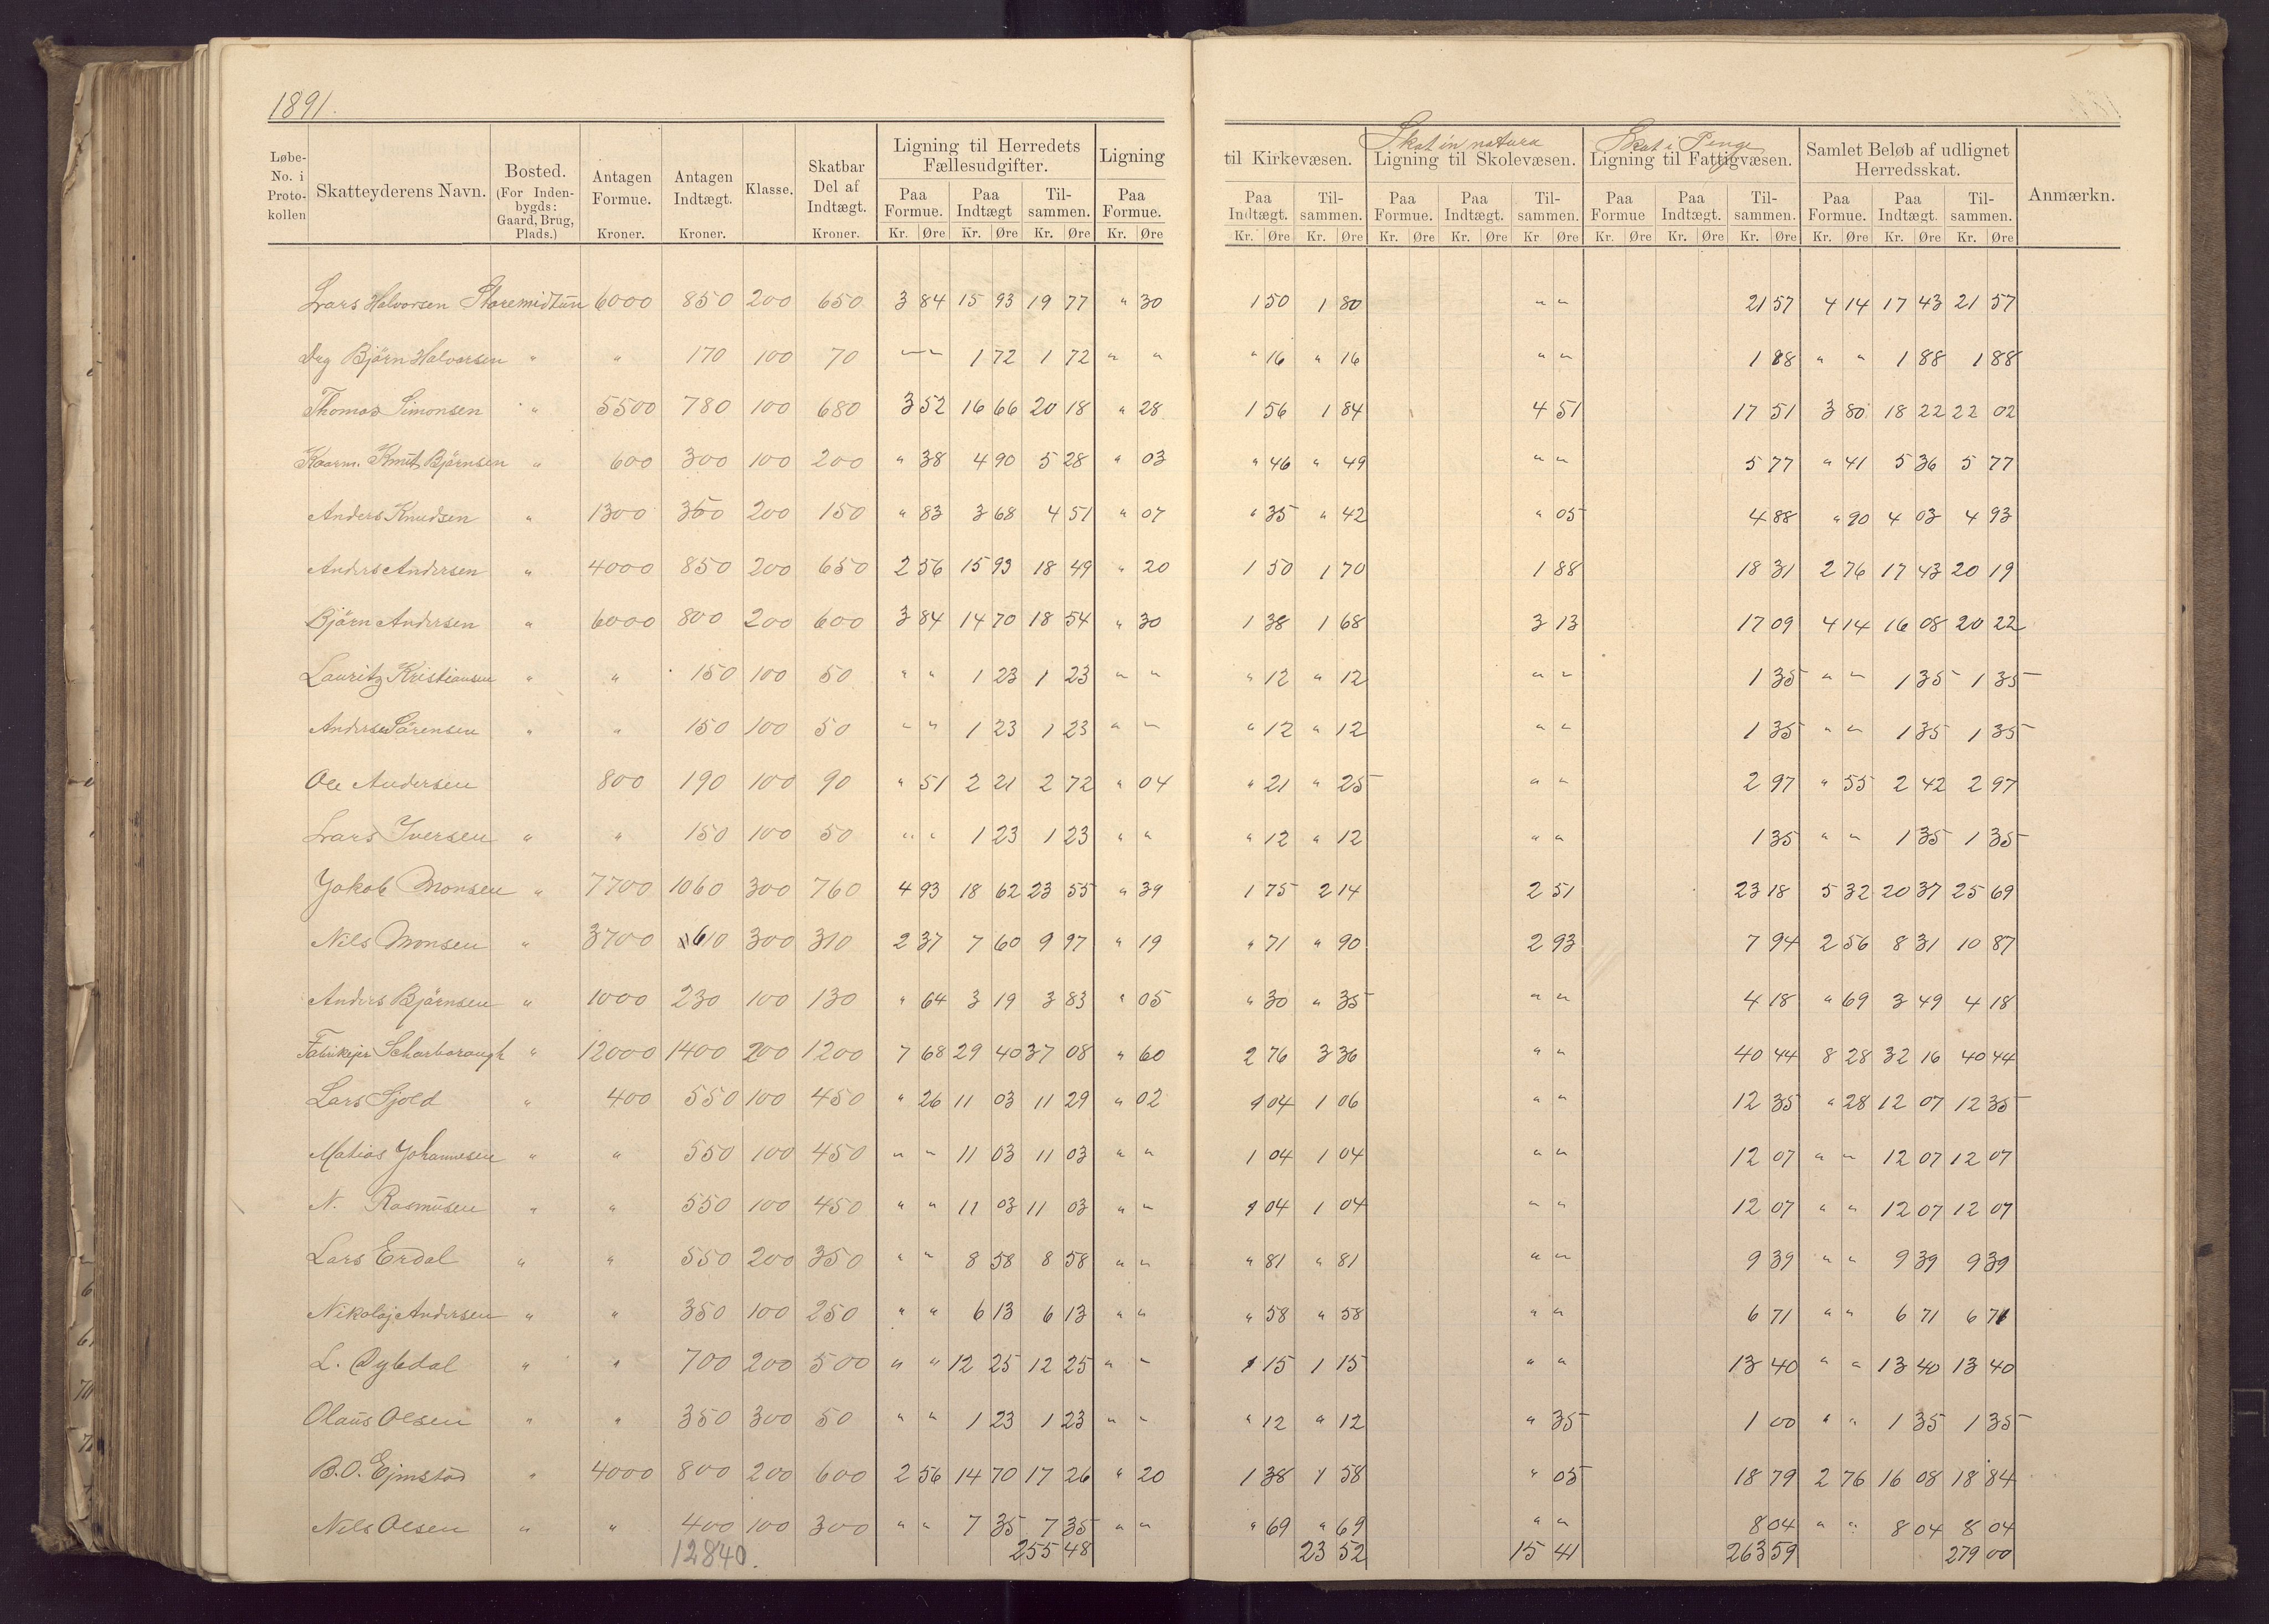 1891.
Løbe-No. i Proto-kollen | Skatteyderens Navn. | Bosted. (For Inden-bygds: Gaard, Brug, Plads.) | Antagen Formue. Kroner. | Antagen Indtægt. Kroner. | Klasse. | Skatbar Del af Indtægt. Kroner. | Ligning til Herredets Fællesudgifter. Paa Formue. Kr. Øre | Paa Indtægt Kr. Øre | Til-sammen. Kr. Øre | Ligning Paa Formue. Kr. Øre | til Kirkevæsen. Paa Indtægt. Kr. Øre | Til-sammen. Kr. Øre | Skat in natura Ligning til Skolevæsen. Paa Formue. Kr. Øre | Paa Indtægt. Kr. Øre | Til-sammen. Kr Øre | Skat i Penge Ligning til Fattigvæsen. Paa Formue Kr. Øre | Paa Indtægt. Kr. Øre | Til-sammen. Kr. Øre | Samlet Beløb af udlignet Herredsskat. Paa Formue. Kr. Øre | Paa Indtægt. Kr. Øre | Til-sammen. Kr. Øre | Anmærkn.
Lars Halvorsen Storemidtun 6000 850 200 650 3 84 15 93 19 77 " 30 1 50 1 80 " " 21 57 4 14 17 43 21 57
Drg Bjørn Halvorsen " " 170 100 70 " " 1 72 1 72 " " " 16 " 16 " " 1 88 " " 1 88 1 88
Thomas Simonsen " 5500 780 100 680 3 52 16 66 20 18 " 28 1 56 1 84 4 51 17 51 3 80 18 22 22 02
Kaarm. Knut Bjørnsen " 600 300 100 200 " 38 4 90 5 28 " 03 " 46 " 49 " " 5 77 " 41 5 36 5 77
Anders Knudsen " 1300 350 200 150 " 83 3 68 4 51 " 07 " 35 " 42 " 05 4 88 " 90 4 03 4 93
Anders Andersen " 4000 850 200 650 2 56 15 93 18 49 " 20 1 50 1 70 1 88 18 31 2 76 17 43 20 19
Bjørn Andersen " 6000 800 200 600 3 84 14 70 18 54 " 30 1 38 1 68 3 13 17 09 4 14 16 08 20 22
Lauritz Kristiansen " " 150 100 50 " " 1 23 1 23 " " " 12 " 12 " " 1 35 " " 1 35 1 35
Anders Sørensen " " 150 100 50 " " 1 23 1 23 " " " 12 " 12 " " 1 35 " " 1 35 1 35
Ole Andersen 800 190 100 90 " 51 2 21 2 72 " 04 " 21 " 25 " " 2 97 " 55 2 42 2 97
Lars Iversen " " 150 100 50 " " 1 23 1 23 " " " 12 " 12 " " 1 35 " " 1 35 1 35
Jakob Monsen " 7700 1060 300 760 4 93 18 62 23 55 " 39 1 75 2 14 2 51 23 18 5 32 20 37 25 69
Nils Monsen " 3700 610 300 310 2 37 7 60 9 97 " 19 " 71 " 90 2 93 7 94 2 56 8 31 10 87
Anders Bjørnsen " 1000 230 100 130 " 64 3 19 3 83 " 05 " 30 " 35 " " 4 18 " 69 3 49 4 18
Fabrikejer Scharborough " 12000 1400 200 1200 7 68 29 40 37 08 " 60 2 76 3 36 " " 40 44 8 28 32 16 40 44
Lars Sjold " 400 550 100 450 " 26 11 03 11 29 " 02 1 04 1 06 " " 12 35 " 28 12 07 12 35
Matias Johannesen " " 550 100 450 " " 11 03 11 03 " " 1 04 1 04 " " 12 07 " " 12 07 12 07
N. Rasmusen " " 550 100 450 " " 11 03 11 03 " " 1 04 1 04 " " 12 07 " " 12 07 12 07
Lars Erdal " " 550 200 350 " " 8 58 8 58 " " " 81 " 81 " " 9 39 " " 9 39 9 39
Nikolaj Andersen " " 350 100 250 " " 6 13 6 13 " " " 58 " 58 " " 6 71 " " 6 71 6 71
L. Dybdal " " 700 200 500 " " 12 25 12 25 " " 1 15 1 15 " " 13 40 " " 13 40 13 40
Olaus Olsen " " 350 300 50 " " 1 23 1 23 " " " 12 " 12 " 35 1 00 " " 1 35 1 35
B.O. Ejmstad " 4000 800 200 600 2 56 14 70 17 26 " 20 1 38 1 58 " 05 18 79 2 76 16 08 18 84
Nils Olsen " " 400 100 300 " " 7 35 7 35 " " " 69 " 69 " " 8 04 " " 8 04 8 04
12840. 255 48 23 52 15 41 263 59 279 00